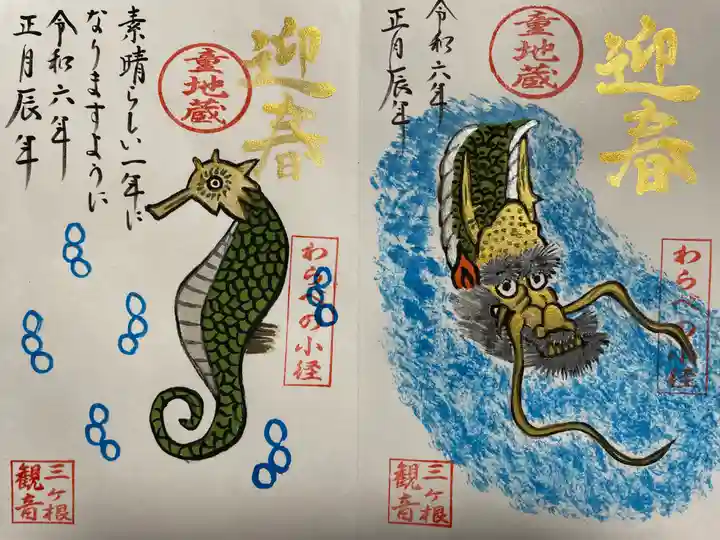 迎春
童地蔵
素晴らしい一年に
なりますように
令和六年
正月辰年
わらべの小径
三ヶ根
観音
迎春
童地蔵
令和六年
正月辰年
わらべの小径
三ヶ根
観音